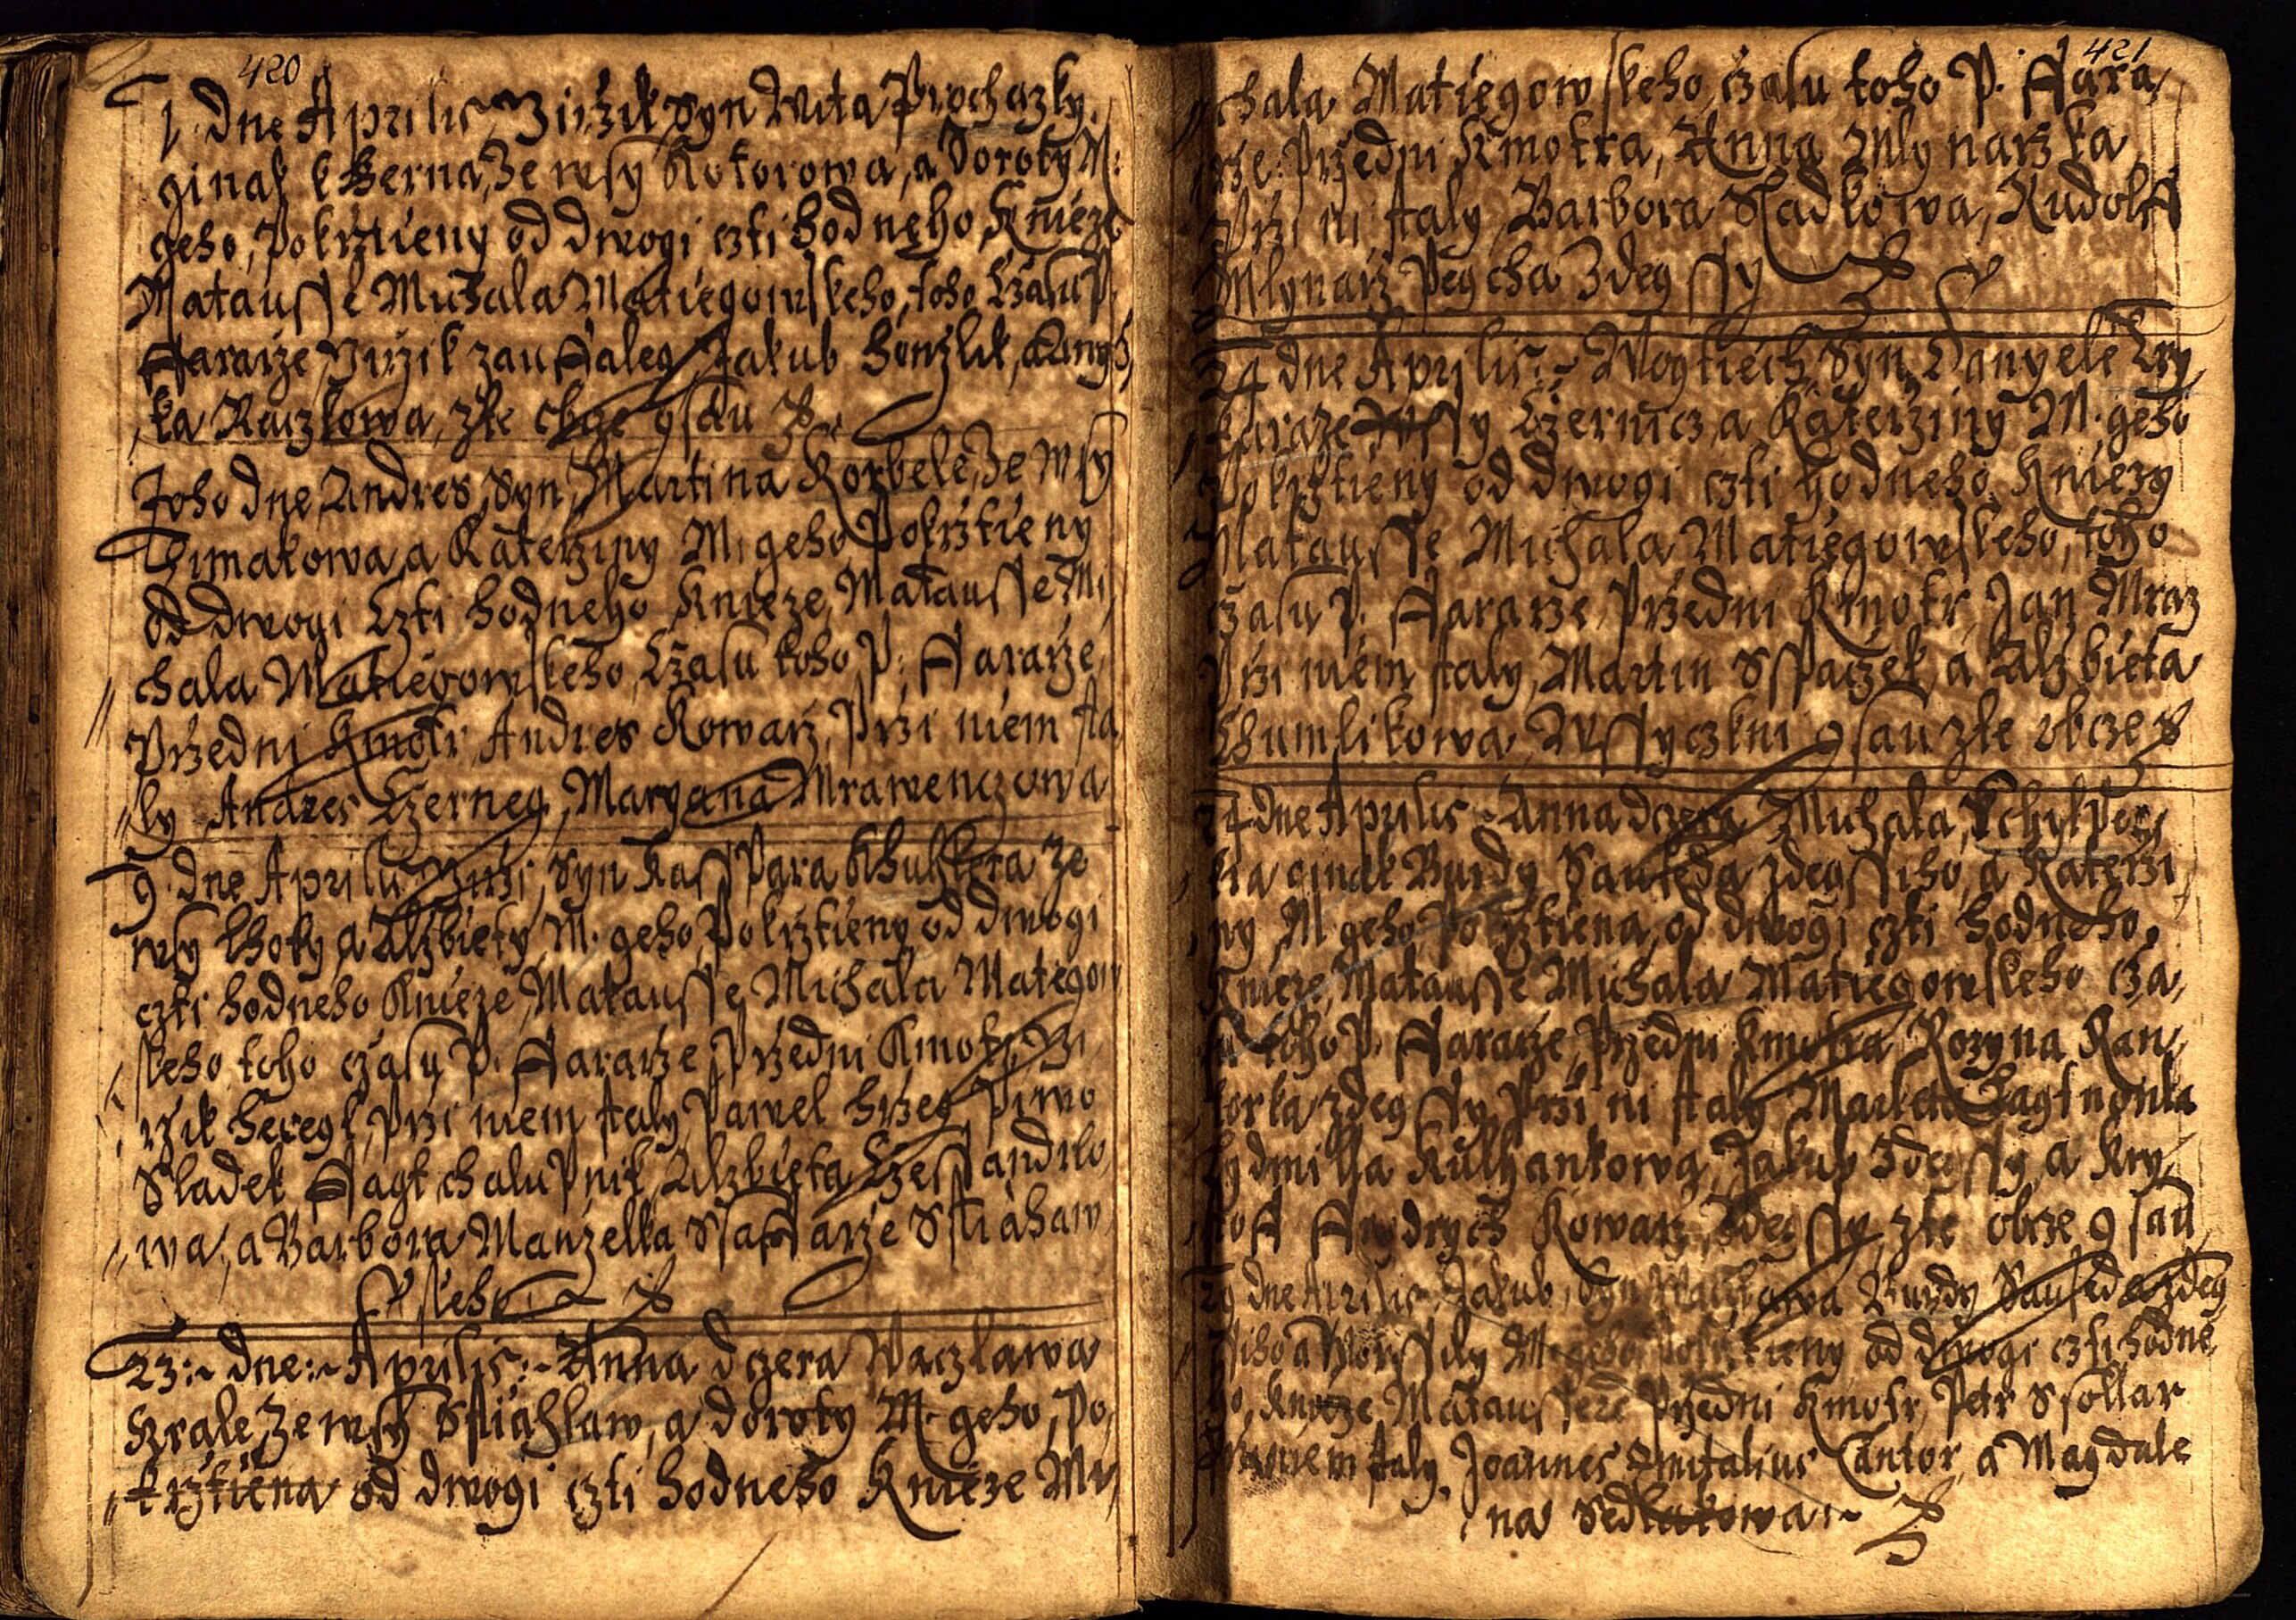 420
1. dne Aprilis, Jirzik Syn Wita Prochazky,
ginak k Berna, Ze wsy Kotorowa, a Doroty M:
geho, Pokrztieny od dwogi czti hodneho Knieze
Matausse Michala Matiegowskeho, toho Czasu P.
Fararze, Jirzik Jakub Henzlik,
ka Raczkowa, zte obcze gsau
Toho dne, Andres, Syn Martina Korbele, Ze wsy
a Katerziny M: geho Pokrztieny
od dwogi Czti hodneho Knieze, Matausse Mi,
chala Matiegowskeho, Czasu toho P: Fararze,
Przedni Kmotr Andres Kowarz, Przi niem sta
ly Andres Czerneg, Maryana Mrawenczowa
9. dne Aprilis Jirzi, Syn Kasspara ze
wsy Lhoty, a Alzbiety, M. geho, Pokrztieny od dwogi
czti hodneho Knieze, Matausse Michala Matiegow
skeho, toho czasu P. Fararze, Przedni Kmotr, Ji,
rzik Heregt, Przi niem staly, Pawel hrzeg Piwo
Sladek chalupnik, Alzbieta
wa, a Barbora Manzelka Ssafarze Stiahaw
skeho
23:~ dne:~ Aprilis:~ Anna dczera Waczlawa
Krale, Ze wsy Stiahlaw, a doroty M. geho, Po,
krztiena od dwogi czti hodneho Knieze Mi,
421
chala Matiegowskeho, czasu toho P. Fara,
rze: Przedni Kmotra, Anna Mlynarzka
Przi ni staly, Barbora Sladkowa, Rudolff
Mlynarz Pegcha Zdegssy
24 dne Aprilis:~ Wogtiech Syn Danyele Try,
Czernicz, a Katerziny M. geho
Pokrztieny od dwogi czti hodneho Kniezy
Matausse Michala Matiegowskeho, toho
czasu P. Fararze, Przedni Kmotr, Jan Mraz
Przi niem staly, Martin Sspaczek, a Alzbieta
Chumlikowa, Wssyczkni gsau zte obcze
dne Aprilis~ Anna dczera Michala,
ginak Burdy Sauseda zdegssiho, a Katerzi,
ny, M geho, Pokrztiena, od dwogi czti hodneho,
Knieze, Matausse Michala Matiegowskeho cza,
su toho P. Fararze, Przedni Kmotra Rozyna Kan,
torka zdegssy, Przi ni staly Marketa
Lydmilla Kulhankowa, Jakub Zdegssy, a Kry,
stof Kowarz, Zdegssy, zte obcze gsau
29 dne Aprilis~ Jakub, Syn Waczlawa Burdy Sauseda zdeg,
ssiho a Worssily M. geho Pokrztieny od dwogi czti hodne,
ho, Knieze Matausse Przedni Kmotr, Petr Ssollar
Przi niem staly, Joannes Cantor, a Magdale
na Sedlakowa:~